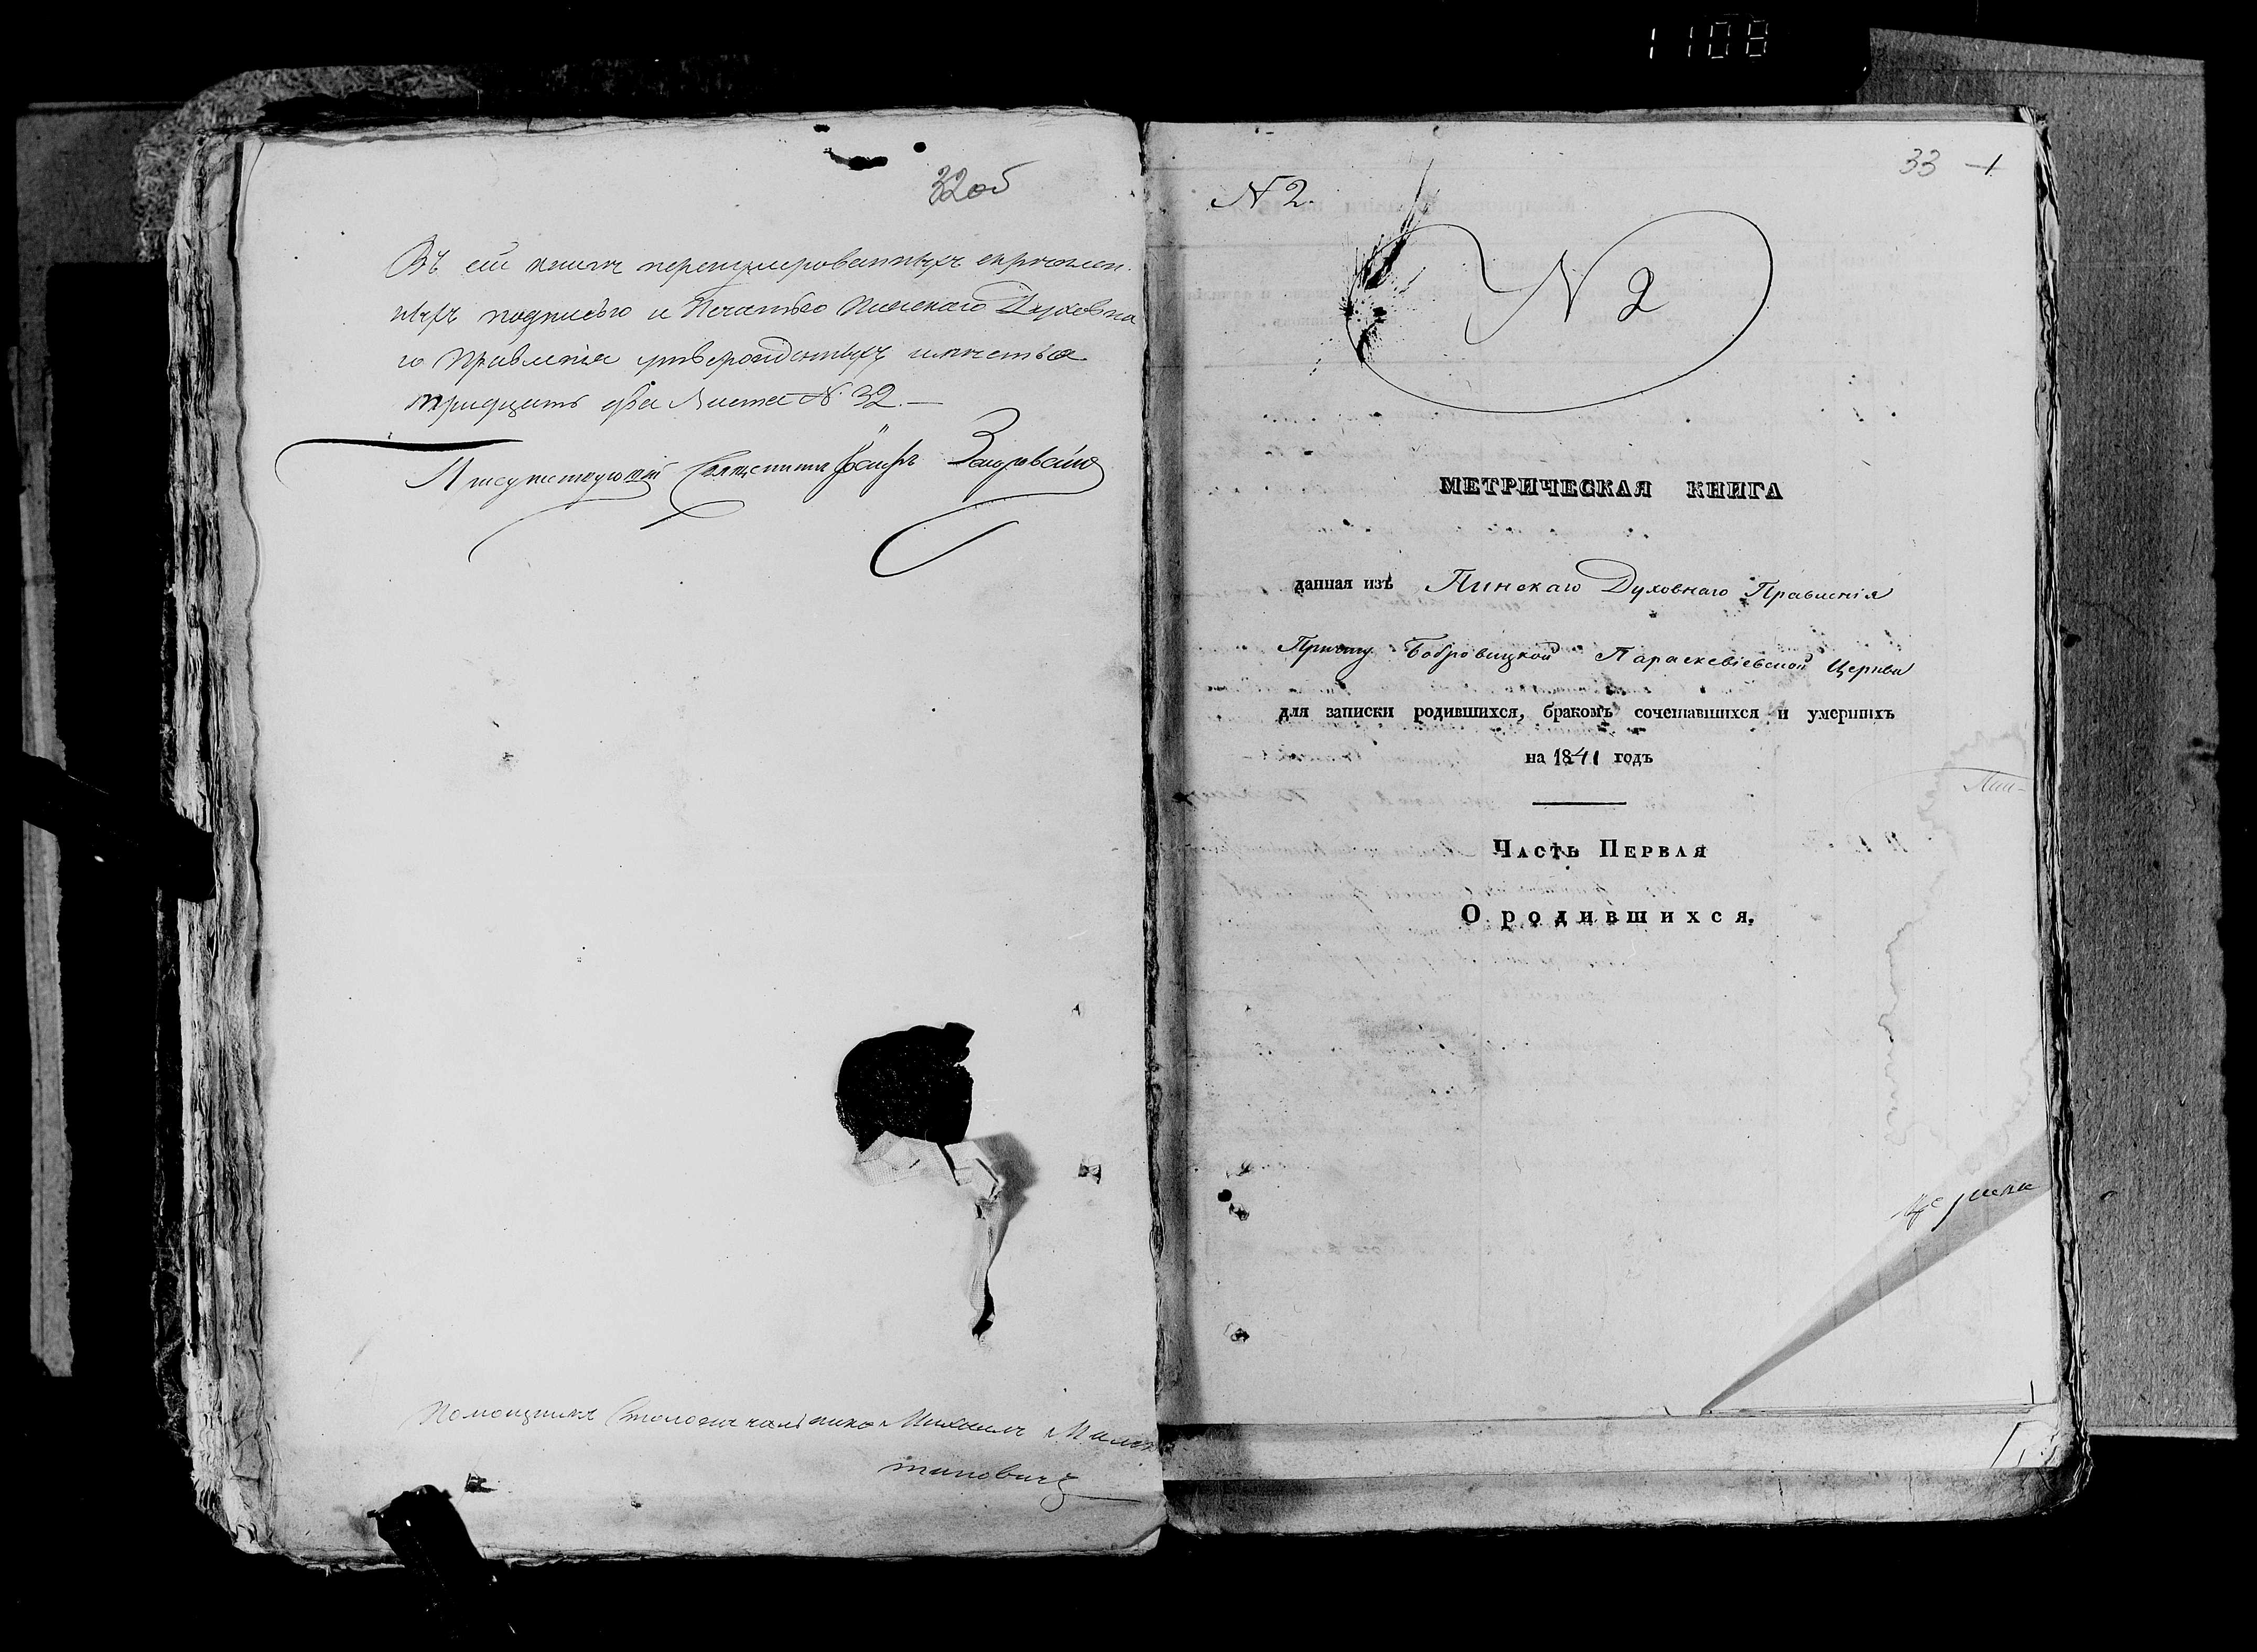 1108
32об
Въ сей книге перенумерованныхъ скреплен-
ныхъ подписью и Печатью Пинскаго Духовна
го Правленія утвержденныхъ имеется
тридцать два Листа N. 32. —
Присутствующій Священникъ
Помощникъ Столоначальника Михаилъ
33 1
N 2.
N 2
МЕТРИЧЕСКАЯ КНИГА
данная изъ Пинскаго Духовнаго Правленія
Причту Бобровицкой Параскевіевской Церкви
для записки родившихся, бракомъ сочетавшихся и умершихъ
на 1841 годъ
Часть Первая
О родившихся.
Пин-